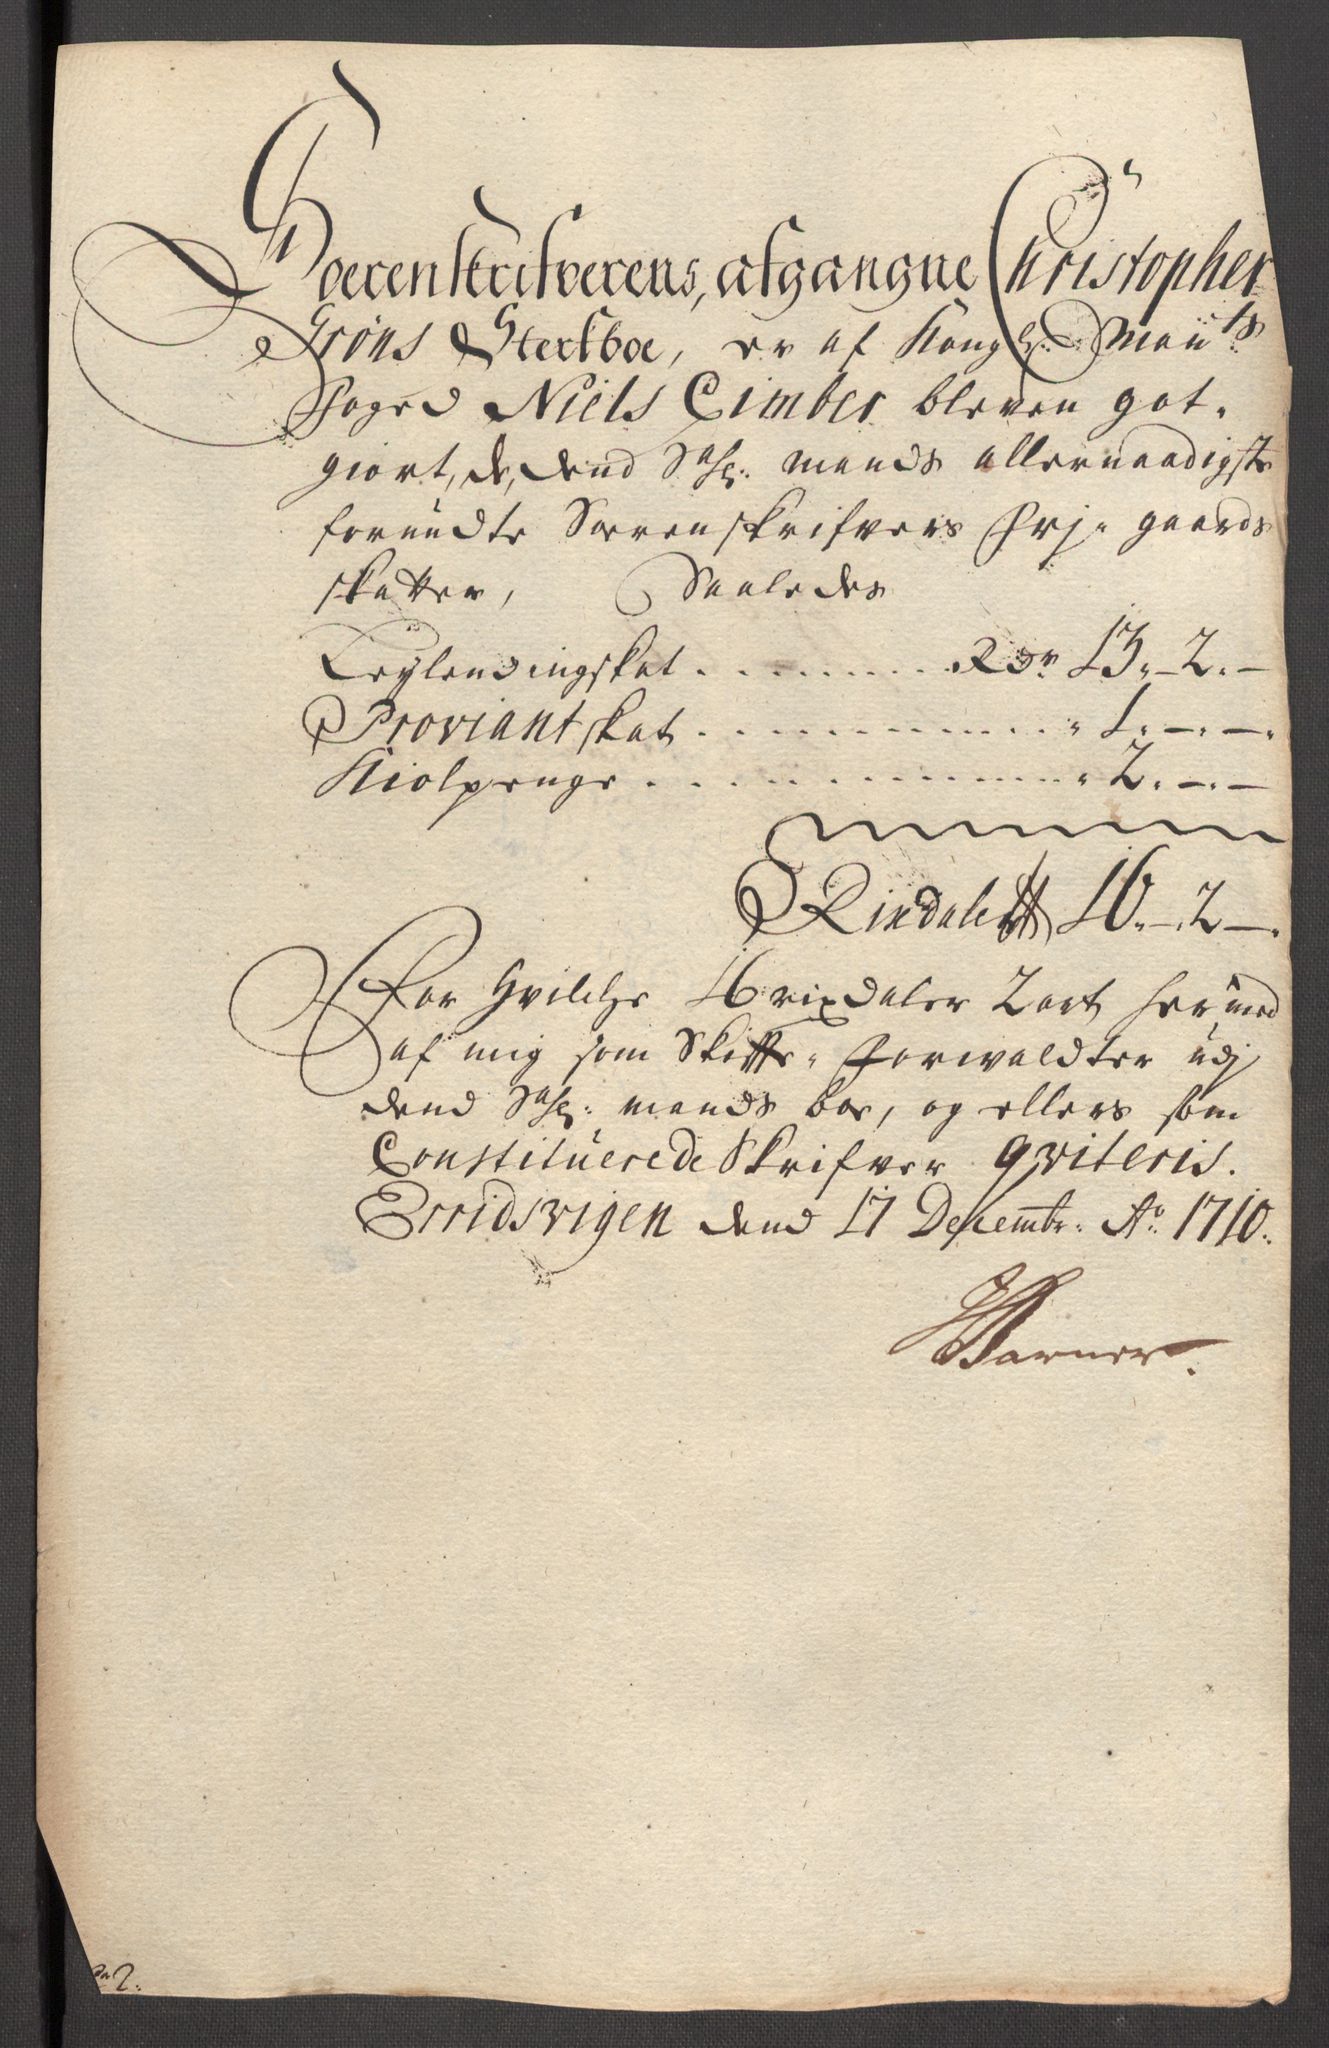 Soerenskrifverens, afgangne Christopher
Gröns Sterfboe, er af Kongl: Maiits
Foged Niels Cimber bleven got-
giort, de, dend Sahl: mands allernaadigste
forundte Sorenskrifvers Frj- gaards
skatter, Saaledes
Leylendingskat . . . . . . . . Rdr 13. - 2. -
Proviantskat . . . . . . . . . . " 1. - . - .
Kiolpenge . . . . . . . . . . . " 2. - . -
Rixdaler 16. - . 2 - .
For Hvilche 16 rixdaler 2 ort hermed
af mig som Skiffte- Forwaldter udj
dend Sahl: mands boe, og ellers som
Constituerede Skrifver qviteris.
Erridsvigen dend 17 Decembr: Ao: 1710.
Warner.
2.